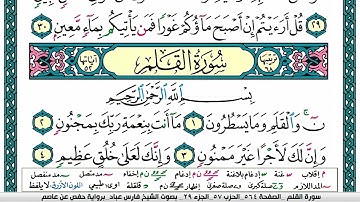 قُلْ أَرَءَيْتُمْ إِنْ أَصْبَحَ مَآؤُكُمْ غَوْرًا فَمَن يَأْتِيكُم بِمَآءٍ مَّعِينٍ ٣٠
سُورَةُ الْقَلَمِ
بِسْمِ اللَّهِ الرَّحْمَٰنِ الرَّحِيمِ
نٓ وَالْقَلَمِ وَمَا يَسْطُرُونَ ١ مَآ أَنتَ بِنِعْمَةِ رَبِّكَ بِمَجْنُونٍ ٢
وَإِنَّ لَكَ لَأَجْرًا غَيْرَ مَمْنُونٍ ٣ وَإِنَّكَ لَعَلَىٰ خُلُقٍ عَظِيمٍ ٤
سورة القلم الصفحة ٥٦٤ الحزب ٥٧ الجزء ٢٩ بصوت الشيخ فارس عباد برواية حفص عن عاصم